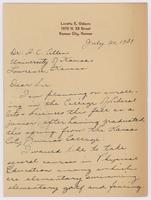 Loretto E. Osborn
1970 N. 32 Street
Kansas City, Kansas
July 20, 1931
Dr. F. C. Allen
University of Kansas
Lawrence, Kansas
Dear Sir
I am planning on enroll-
ing in the College
this fall as a
having graduated
this spring from the Kansas
City Junior College.
I would like to take
several courses in Physical
Education among which
are elementary swimming,
elementary golf, and fencing